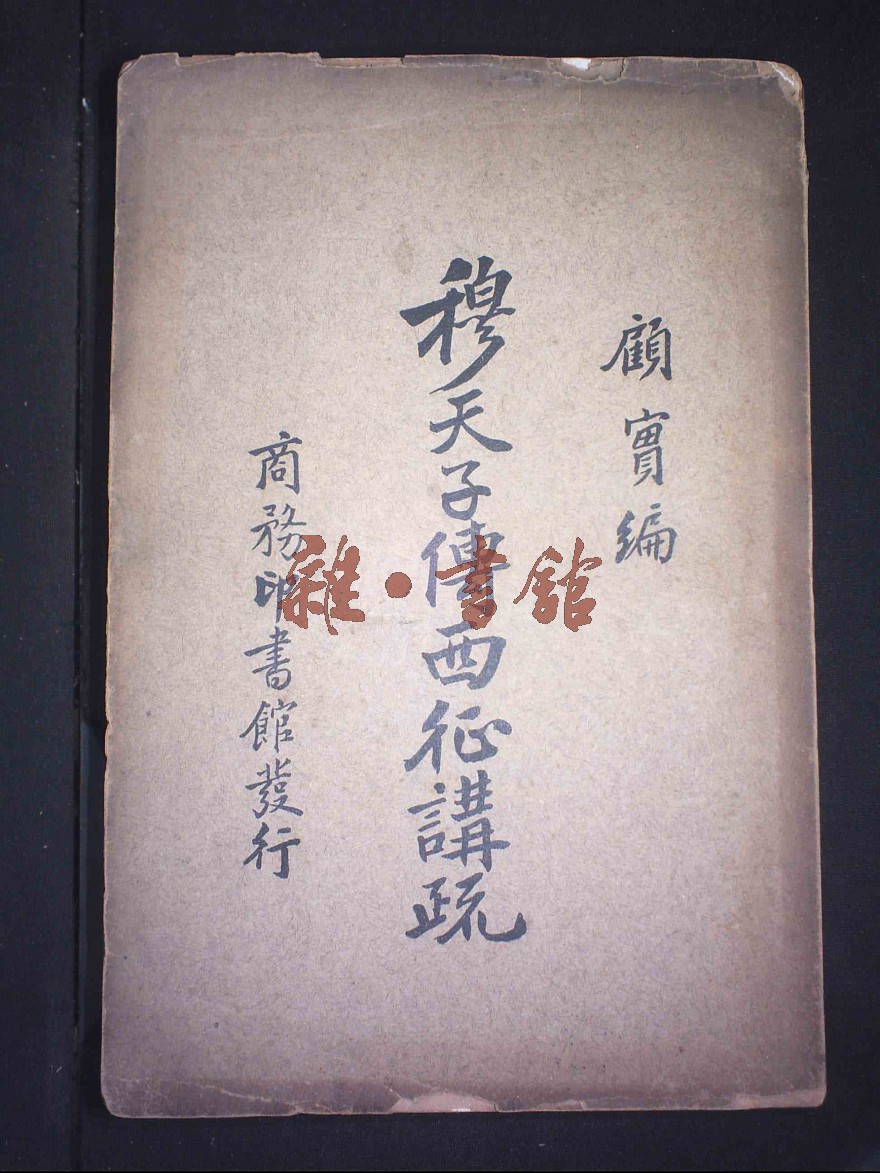 顧實編
穆天子傳西征講疏
商務印書館發行
雜·書館